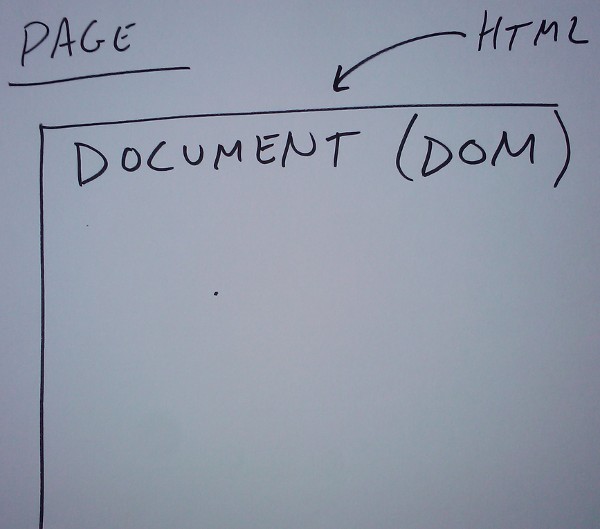 PAGE
HTML
DOCUMENT (DOM)